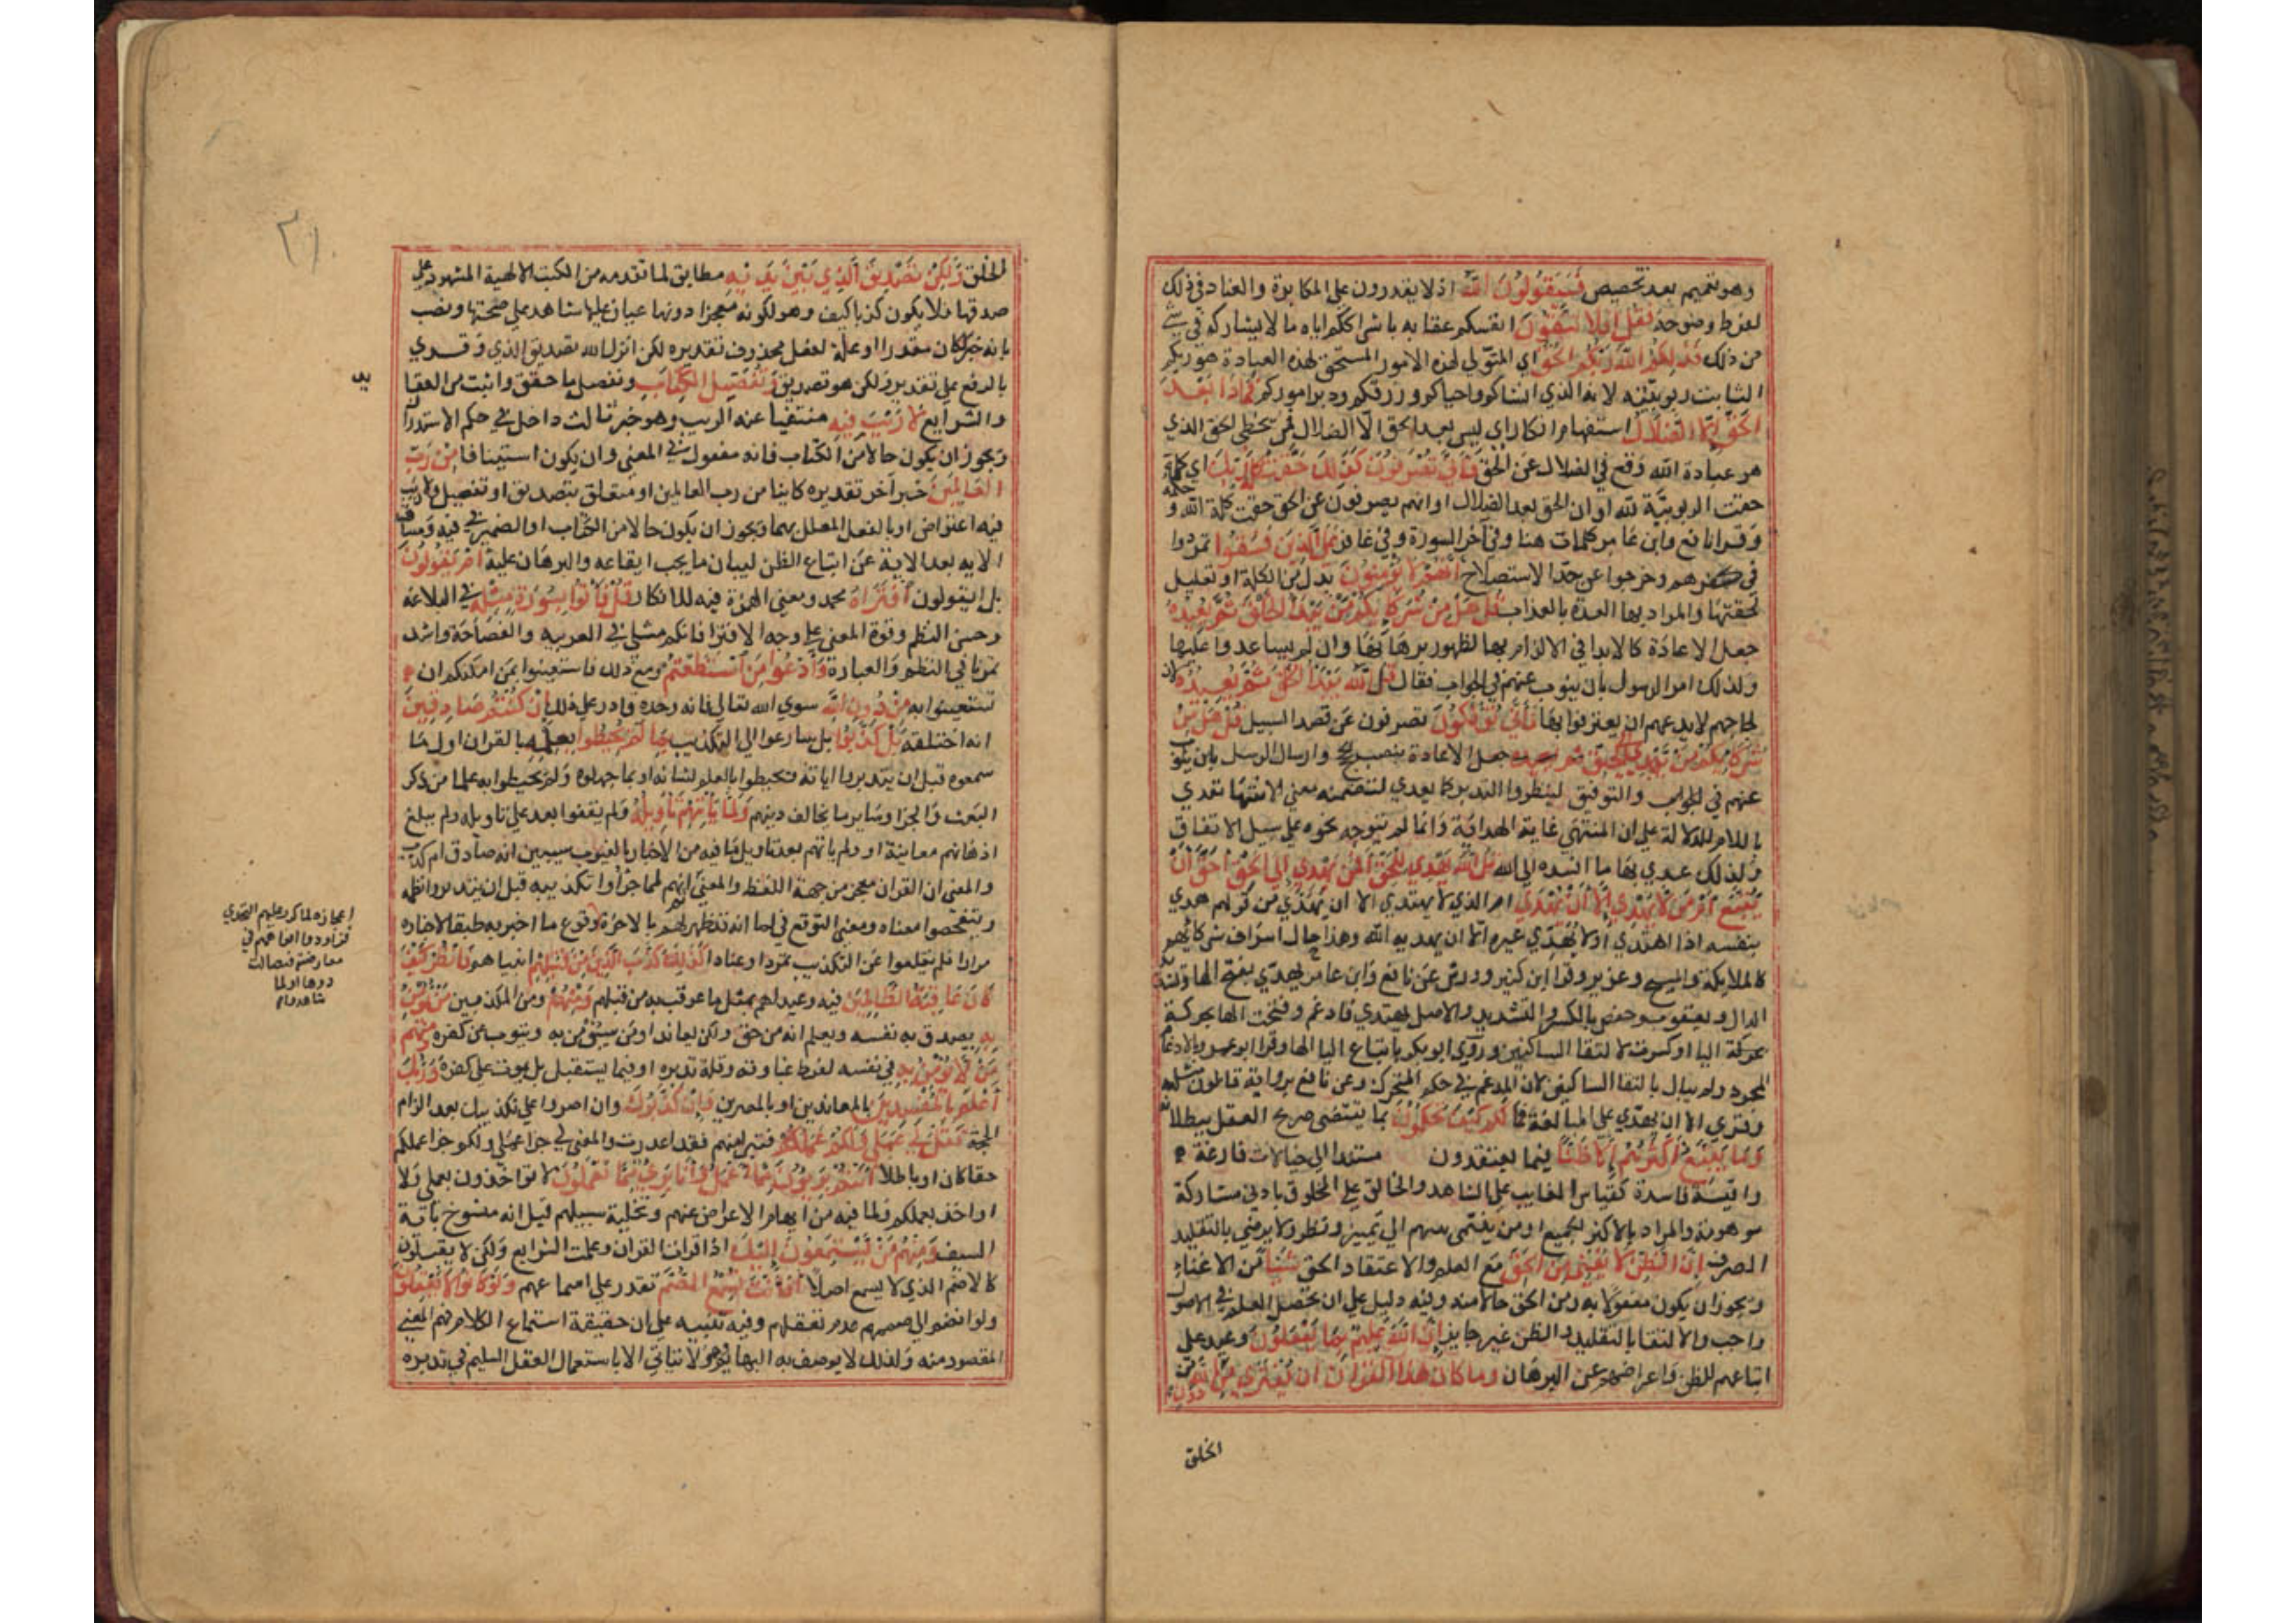 وهو تعميم بعد تخصيص فسيقولون الله اذ لا يقدرون على المكابرة والعناد في ذلك
لفرط وضوحه فقل افلا تتقون انفسكم عقابه باشراككم اياه ما لا يشاركه في شئ
من ذلك فذلكم الله ربكم الحق اي المتولي لهذه الامور المستحق لهذه العبادة هو ربكم
الثابت ربوبيته لانه الذي انشاكم واحياكم ورزقكم ودبر اموركم فماذا بعد
الحق الا الضلال استفهام انكار اي ليس بعد الحق الا الضلال فمن تخطى الحق الذي
هو عبادة الله وقع في الضلال عن الحق فاني تصرفون كذلك حقت كلمة ربك اي كما
حقت الربوبية لله او ان الحق بعد الضلال او انهم يصرفون عن الحق حقت كلمة الله و
حكمه
وقرا نافع وابن عامر كلمات هنا وفي آخر السورة وفي غافر على الذين فسقوا تمردوا
في كفرهم وخرجوا عن حد الاستصلاح انهم لا يؤمنون بدل من الكلمة او تعليل
لحقيتها والمراد بها العدة بالعذاب قل هل من شركائكم من يبدا الخلق ثم يعيده
جعل الاعادة كالابدا في الالزام بها لظهور برهانها وان لم يساعدوا عليها
ولذلك امر الرسول بان ينوب عنهم في الجواب فقال قل الله يبدا الخلق ثم يعيده لان
لجاجهم لا يدعهم ان يعترفوا بها فاني تؤفكون تصرفون عن قصد السبيل قل هل من
شركائكم من يهدي الى الحق بنصب الحجج وارسال الرسل
عنهم في الجواب والتوفيق لينظروا التدبر كما يعدي لتضمنه معنى الانتها تعدي
باللام للدلالة على ان المنتهى غاية الهداية وانها لم تتوجه نحوه على سبيل الاتفاق
ولذلك عدي بها ما اسنده الى الله قل الله يهدي للحق افمن يهدي الى الحق احق ان
يتبع امن لا يهدي الا ان يهدى ام الذي لا يهتدي الا ان يهدى من قولهم هدي
بنفسه اذا اهتدي او لا يهدي غيره الا ان يهديه الله وهذا حال اشراف شركائهم
كالملايكة والمسيح وعزير وقرا ابن كثير وورش عن نافع وابن عامر يهدي بفتح الها وتشديد
الدال ويعقوب وحفص بالكسر والتشديد والاصل يهتدي فادغم وفتحت الها بحركة
التا او كسرت لالتقا الساكنين وروي ابو بكر باتباع اليا الها وقرا ابو عمرو بالادغام
المجرد ولم يبال بالتقا الساكنين لان المدغم في حكم المتحرك وعن نافع برواية قالون مثله
وقري الا ان يهدي على المبالغة فما لكم كيف تحكمون بما يقتضي صريح العقل بطلانه
وما يتبع اكثرهم الا ظنا فيما يعتقدون مستندا الى خيالات فارغة
واقيسة فاسدة كقياس الغايب على الشاهد والخالق على المخلوق بادنى مشاركة
موهومة والمراد بالاكثر الجميع او من ينتمي منهم الى تمييز ونظر ولا يرضي بالتقليد
الصرف ان الظن لا يغني من الحق من العلم والاعتقاد الحق شيئا من الاغناء
ويجوز ان يكون مفعولا به ومن الحق حالا منه وفيه دليل على ان تحصيل العلم في الاصول
واجب والاكتفا بالتقليد والظن غير جايز ان الله عليم بما يفعلون وعيد على
اتباعهم للظن واعراضهم عن البرهان وما كان هذا القران ان يفترى من دون الله من
الخلق
الخلق ولكن تصديق الذي بين يديه مطابق لما تقدمه من الكتب الالهية المشهود على
صدقها فلا يكون كذبا كيف وهو لكونه معجزا دونها عيار عليها شاهد على صحتها ونصب
بانه خبر لكان مقدرا او علة لفعل محذوف تقديره لكن انزله الله تصديق الذي وقري
بالرفع على تقدير ولكن هو تصديق وتفصيل الكتاب وتفصيل ما حقق واثبت من العقا
يد
والشرايع لا ريب فيه منتفيا عنه الريب وهو خبر ثالث داخل في حكم الاستدراك
ويجوز ان يكون حالا من الكتاب فانه مفعول في المعنى وان يكون استينافا من رب
العالمين خبر آخر تقديره كاينا من رب العالمين او متعلق بتصديق او تفصيل ولا ريب
فيه اعتراض او بالفعل المعلل بهما ويجوز ان يكون حالا من الكتاب او الضمير في فيه ومساق
الايه بعد الاية عن اتباع الظن لبيان ما يجب اتباعه والبرهان عليه ام يقولون
بل ايقولون افتراه محمد ومعنى الهمزة فيه للانكار قل فأتوا بسورة مثله في البلاغة
وحسن النظم وقوة المعنى على وجه الافترا فانكم مثلي في العربية والفصاحة واشد
تمرنا في النظم والعبارة وادعوا من استطعتم ومع ذلك فاستعينوا بمن امكنكم ان
تستعينوا به من دون الله سوي الله تعالى فانه وحده قادر على ذلك ان كنتم صادقين
انه اختلقه بل كذبوا بل سارعوا الى التكذيب بما لم يحيطوا بعلمه بالقران اول ما
سمعوه قبل ان يتدبروا اياته ويحيطوا بالعلم بشانه او بما جهلوه ولم يحيطوا به علما من ذكر
البعث والجزا وساير ما يخالف دينهم ولما يأتهم تأويله ولم يقفوا بعد على تاويله ولم يبلغ
اذهانهم معانيه او ولم ياتهم بعد تاويل ما فيه من الاخبار بالغيوب حتى يتبين انه صادق ام كذب
والمعنى ان القران معجز من جهة اللفظ والمعنى ثم انهم فاجؤا تكذيبه قبل ان يتدبروا نظمه
ويتفحصوا معناه ومعنى التوقع في لما انه قد ظهر لهم بالاخرة وقوع ما اخبر به طبقا لاخباره
اعجازه لما كرر عليهم التحدي
فزادوا قواهم في
معارضته فتضالت
دونها اولما
شاهدوا
مرارا فلم يقلعوا عن التكذيب تمردا وعنادا كذلك كذب الذين من قبلهم انبياهم فانظر كيف
كان عاقبة الظالمين فيه وعيد لهم بمثل ما عوقب به من قبلهم ومنهم ومن المكذبين من يؤمن
به يصدق به نفسه ويعلم انه حق ولكن يعاند او من سيؤمن به ويتوب عن كفره ومنهم
من لا يؤمن به في نفسه لفرط غباوته وقلة تدبره او فيما يستقبل بل يموت على كفره وربك
اعلم بالمفسدين بالمعاندين او بالمصرين وان كذبوك وان اصروا على تكذيبك بعد الزام
الحجة فقل لي عملي ولكم عملكم فتبرا منهم فقد اعذرت والمعنى لي جزا عملي ولكم جزا عملكم
حقا كان او باطلا انتم بريؤن مما اعمل وانا بريء مما تعملون لا تواخذون بعملي ولا
اواخذ بعملكم ولما فيه من ايهام الاعراض عنهم وتخلية سبيلهم قيل انه منسوخ باية
السيف ومنهم من يستمعون اليك اذا قرات القران وعلمت الشرايع ولكن لا يقبلون
كالاصم الذي لا يسمع اصلا افانت تسمع الصم تقدر على اسماعهم ولو كانوا لا يعقلون
ولو انضم الى صممهم عدم تعقلهم وفيه تنبيه على ان حقيقة استماع الكلام فهم المعنى
المقصود منه ولذلك لا يوصف به البهايم وهو لا يتاتي الا باستعمال العقل السليم في تدبره